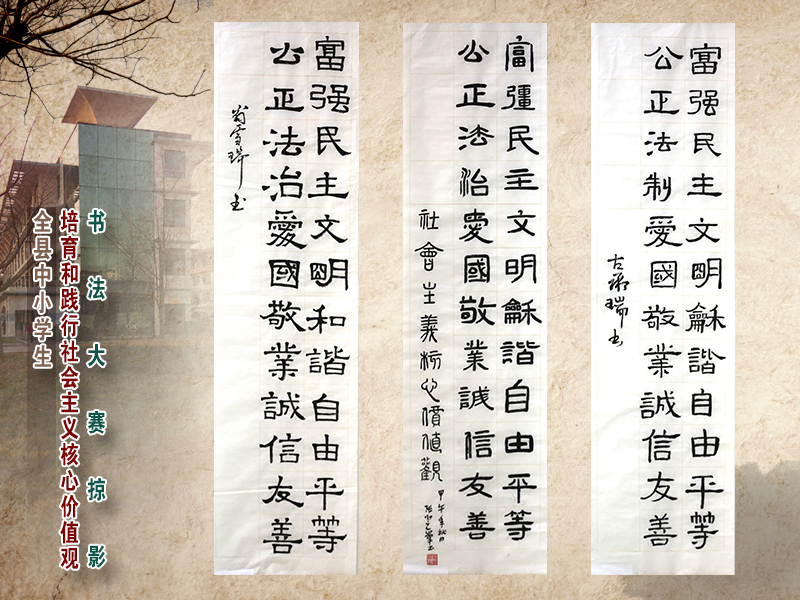 全县中小学生
培育和践行社会主义核心价值观
书法大赛掠影
富强民主文明和諧自由平等
公正法治愛國敬業誠信友善
翁雪瑞书
富彊民主文明龢諧自由平等
公正法治愛國敬業誠信友善
社會主義核心價值觀
甲午年秋月
富强民主文明龢諧自由平等
公正法制愛國敬業誠信友善